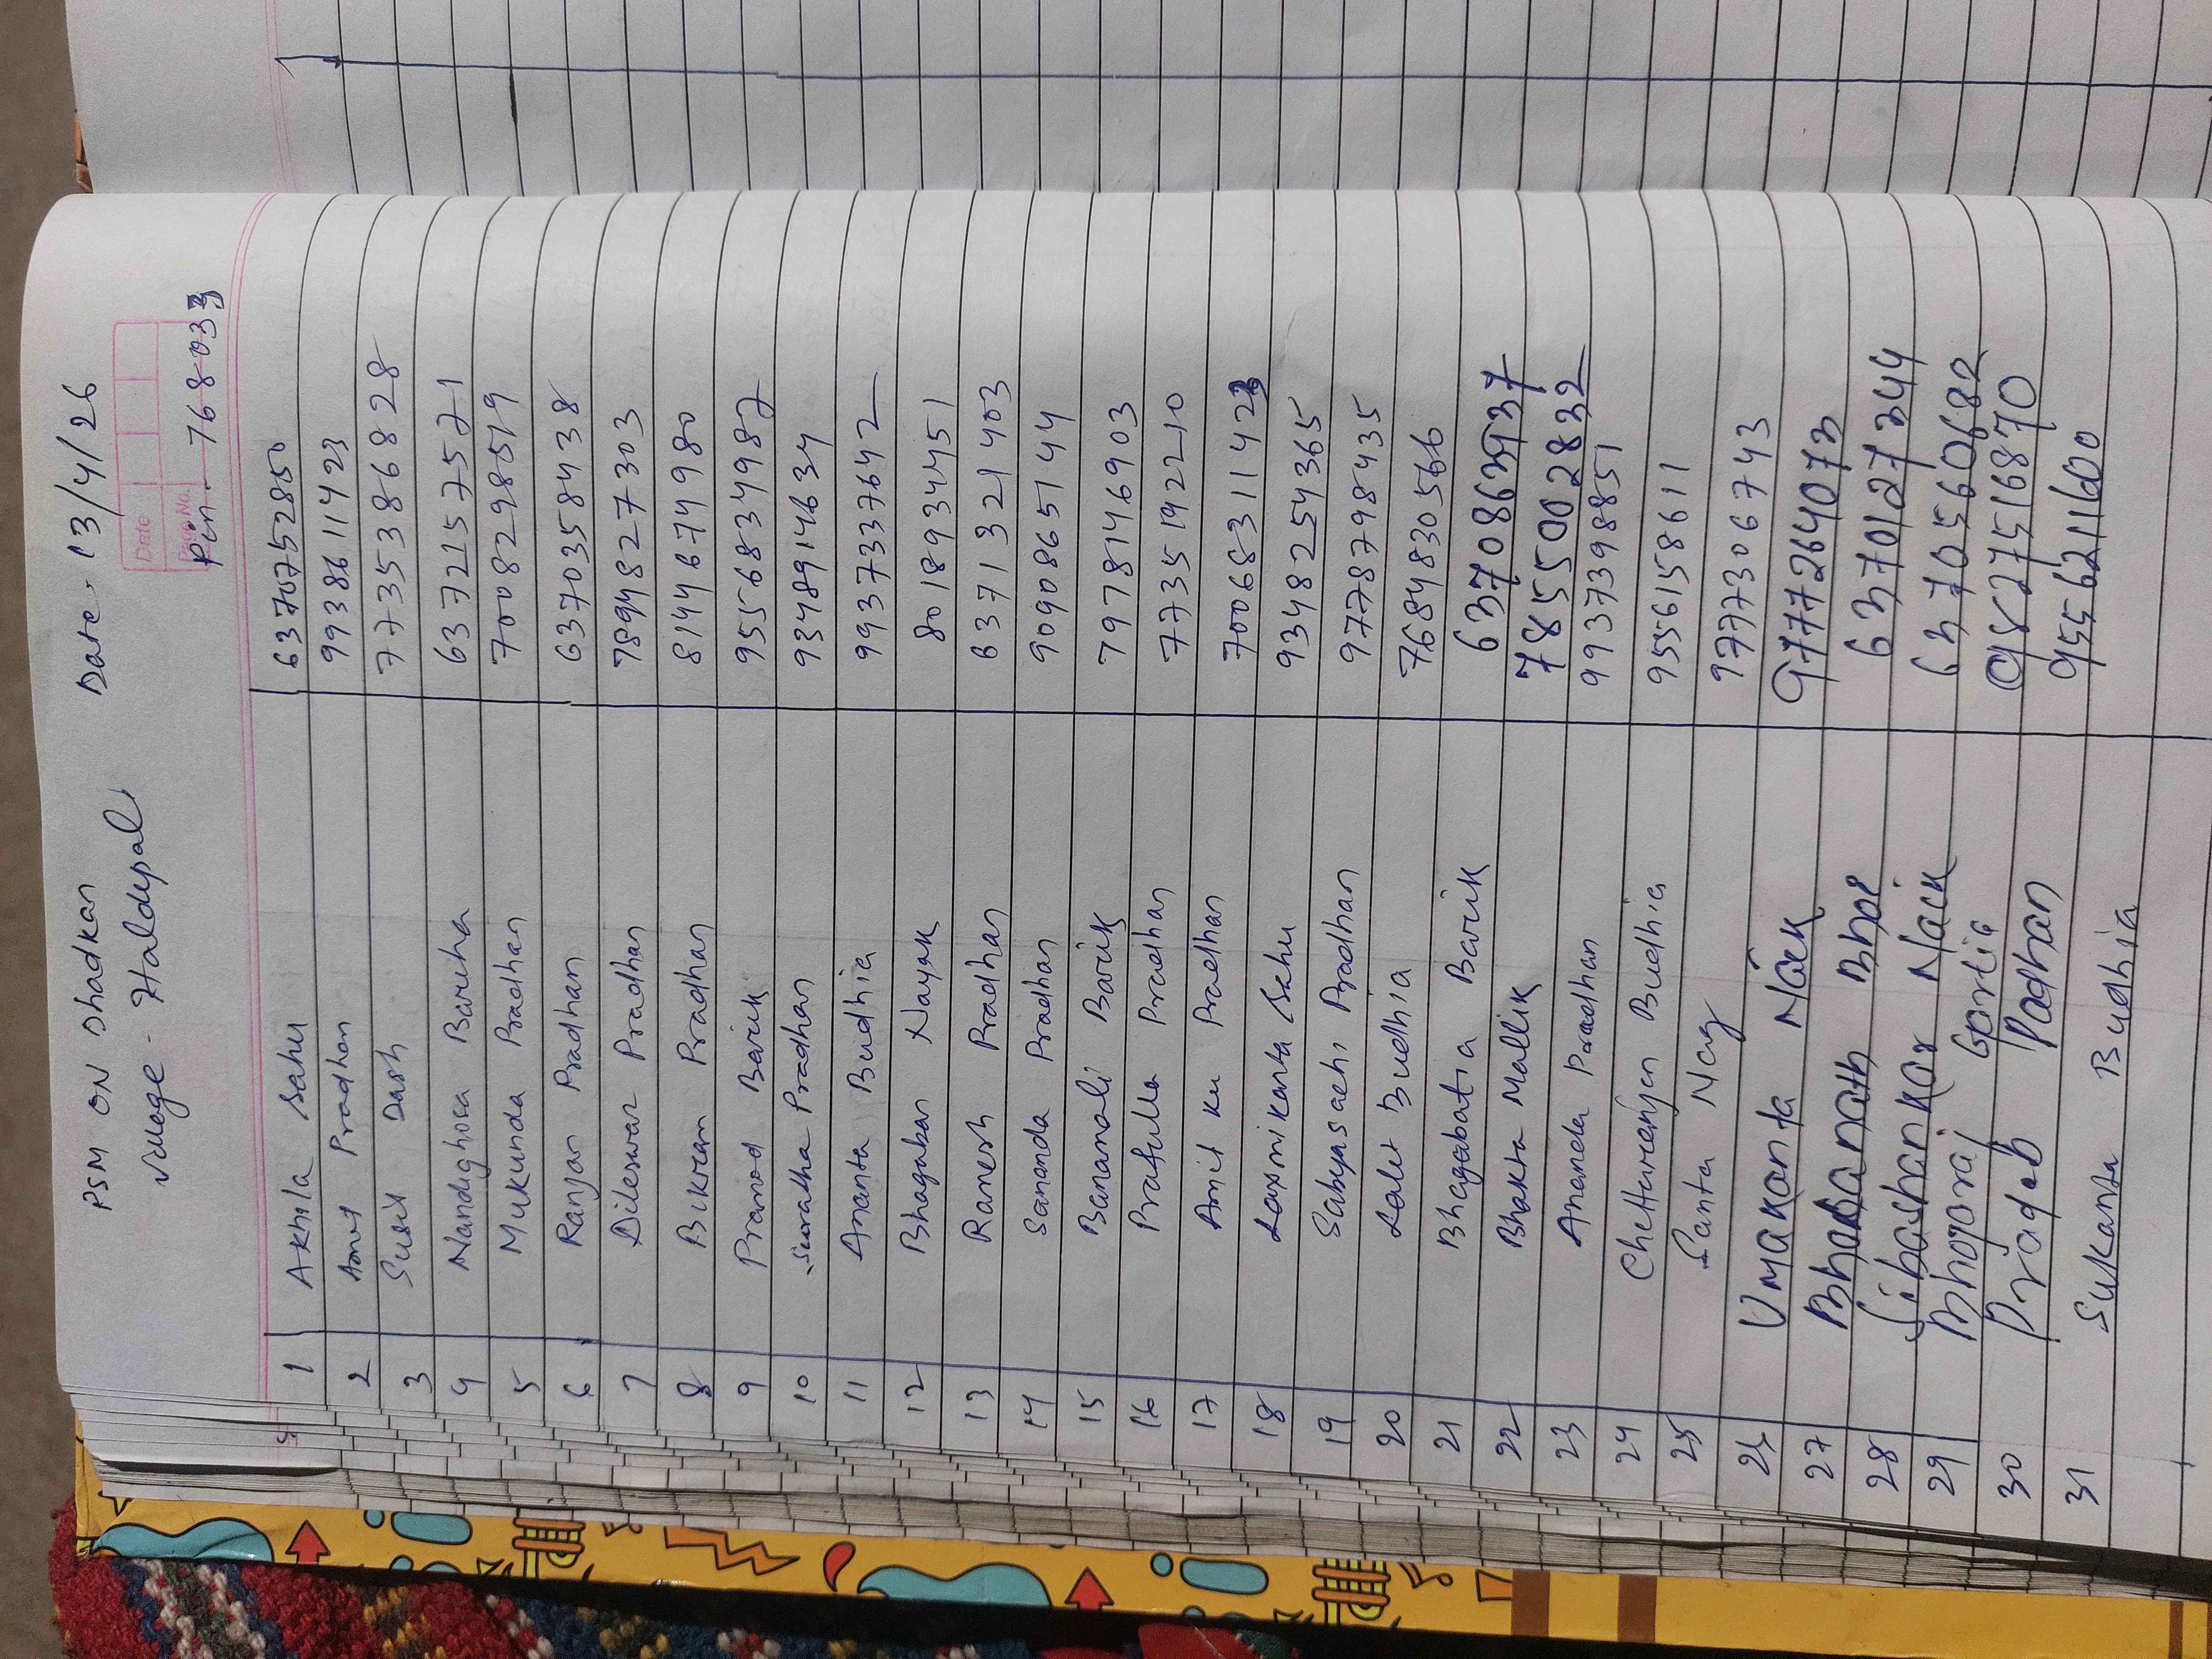 PSM ON Dhadkan Date - 13/4/26
Village - Haldipali
Date
Page No.
Pin - 768033
1 Akhila Sahu 6370752850
2 Amit Pradhan 9938611423
3 Susil Dash 7735386828
4 Nandighosa Bariha 6372157571
5 Mukunda Pradhan 7008298519
6 Ranjan Pradhan 6370358438
7 Dileswar Pradhan 7894827303
8 Bikram Pradhan 8144674980
9 Pramod Barik 9556834987
10 Suratha Pradhan 9348914634
11 Ananta Budhia 9937337642
12 Bhagaban Nayak 8018934451
13 Ramesh Pradhan 6371321403
14 Sananda Pradhan 9090865144
15 Banamali Barik 7978146903
16 Prafulla Pradhan 7735192210
17 Amit ku Pradhan 7006831142
18 Laxmikanta Sahu 9348254365
19 Sabyasachi Pradhan 9778798435
20 Lalit Budhia 7684830566
21 Bhagabatia Barik 6370863937
22 Bhakta Mallik 7855002832
23 Ananda Pradhan 9937398851
24 Chittaranjan Budhia 9556158611
25 Santa Nag 9777306743
26 Umakanta Naik 9777264073
27 Bhabanath Bhoe 6370127344
28 Sibashankar Naik 6370560682
29 Bhojaraj Gartia
30 Pradeb Padhan 9827516870
31 Sukanta Budhia 9556211600